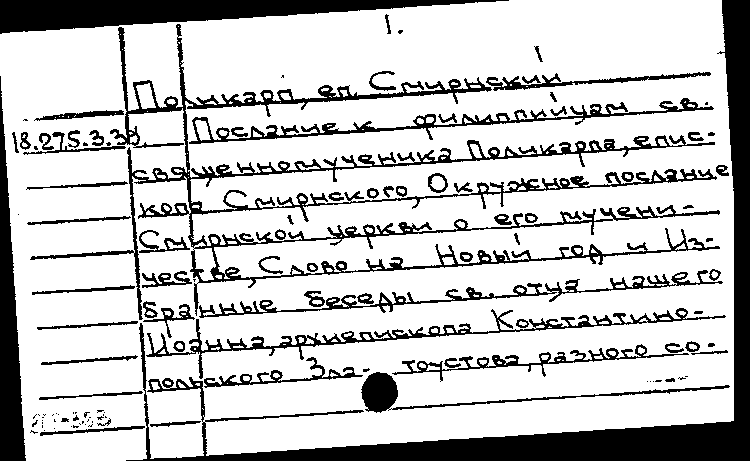 1.
Поликарп, еп. Смирнский
18.275.3.33. Послание к филиппийцам св.
священномученика Поликарпа, епис-
копа Смирнского, Окружное послание
Смирнской церкви о его мучени-
честве, Слово на Новый год и Из-
бранные беседы св. отца нашего
Иоанна, архиепископа Константино-
польского Зла- тоустова, разного со-